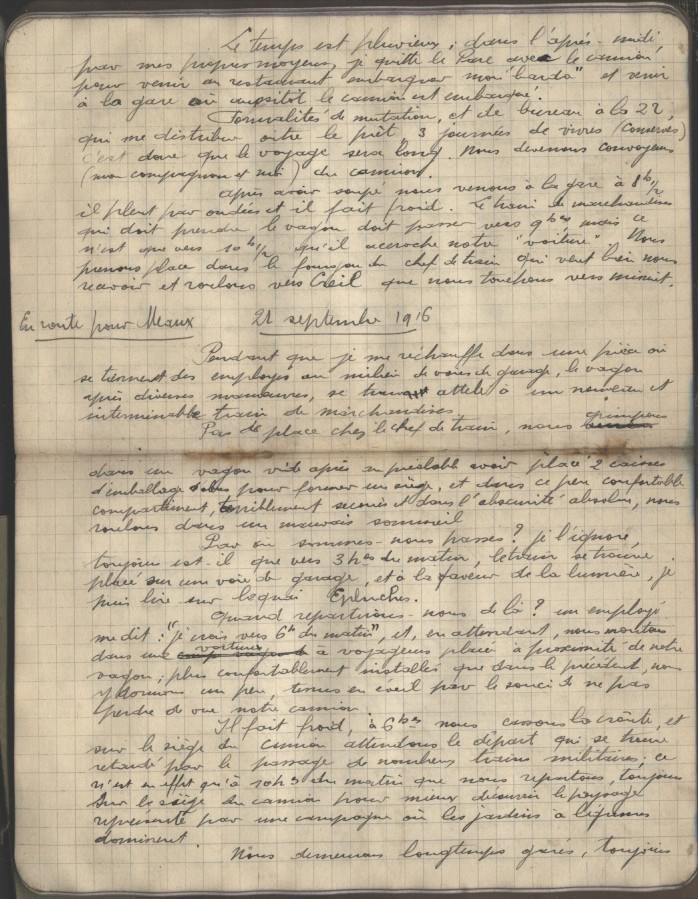 Le temps est pluvieux ; dans l'après-midi,
par mes propres moyens, je quitte le Parc avec le camion
pour venir au restaurant embarquer mon "barda" et venir
à la gare où aussitôt le camion est embarqué.
Formalités de mutation, et de bureau à la 22,
qui me distribue outre le prêt, 3 journées de vivres (conserves)
c'est donc que le voyage sera long. Nous devenons convoyeurs
(mon compagnon et moi) du camion.
Après avoir soupé nous venons à la gare à 8h 1/2
il pleut par ondées et il fait froid. Le train de marchandises
qui doit prendre le wagon doit passer vers 9hes mais ce
n'est que vers 10h 1/2 qu'il accroche notre "voiture". Nous
prenons place dans le fourgon du chef de train qui veut bien nous
recevoir et roulons vers Creil que nous touchons vers minuit.
En route pour Meaux 21 septembre 1916
Pendant que je me réchauffe dans une pièce où
se tiennent des employés au milieu de voies de garage, le wagon
après diverses manœuvres, se trouve attelé à un nouveau et
interminable train de marchandises.
Pas de place chez le chef de train, nous grimpons
dans un wagon vide après au préalable avoir placé 2 caisses
d'emballage pour former un siège, et dans ce peu confortable
compartiment, terriblement secoués et dans l'obscurité absolue, nous
roulons dans un mauvais sommeil
Par où sommes-nous passés ? je l'ignore,
toujours est-il que vers 3hes du matin, le train se trouve
placé sur une voie de garage, et à la faveur de la lumière, je
puis lire sur le quai Epluches.
Quand repartirons-nous de là ? un employé
me dit : "je crois vers 6h du matin", et, en attendant, nous montons
dans une voiture à voyageurs placée à proximité de notre
wagon ; plus confortablement installés que dans le précédent, nous
y dormons un peu, tenus en éveil par le souci de ne pas
perdre de vue notre camion.
Il fait froid, à 6hes nous cassons la croûte, et
sur le siège du camion attendons le départ qui se trouve
retardé par le passage de nombreux trains militaires ; ce
n'est en effet qu'à 10h 3 du matin que nous repartons, toujours
sur le siège du camion pour mieux découvrir le paysage
représenté par une campagne où les jardins à légumes
dominent.
Nous demeurons longtemps garés, toujours